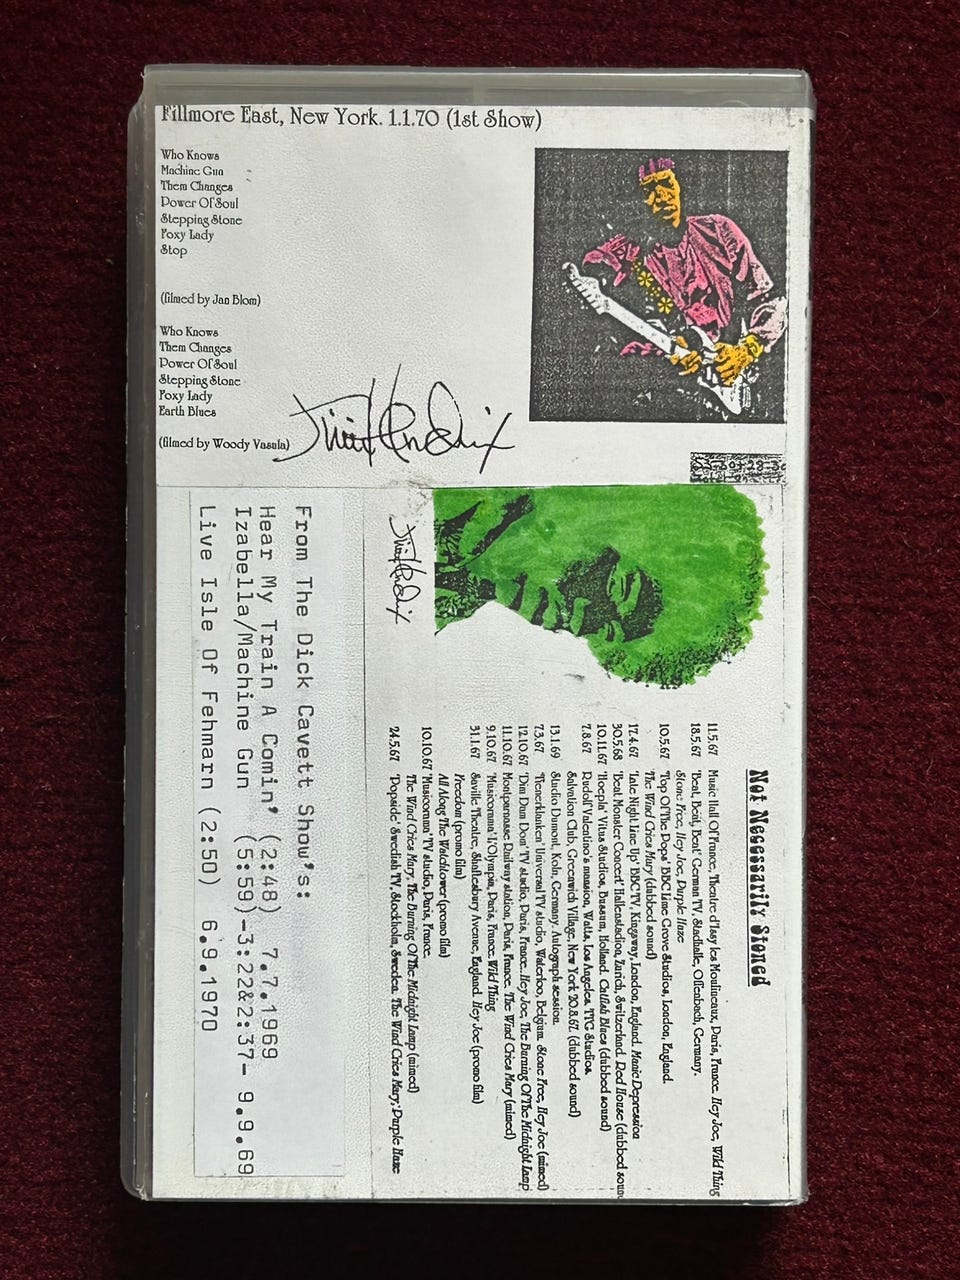 Fillmore East, New York. 1.1.70 (1st Show)
Who Knows
Machine Gun
Them Changes
Power Of Soul
Stepping Stone
Foxy Lady
Stop
(filmed by Jan Blom)
Who Knows
Them Changes
Power Of Soul
Stepping Stone
Foxy Lady
Earth Blues
(filmed by Woody Vasula)
Jimi Hendrix
Jimi Hendrix
Not Necessarily Stoned
11.5.67 Music Hall Of France, Theatre d'Issy les Moulineaux, Paris, France. Hey Joe, Wild Thing
18.5.67 'Beat, Beat, Beat' German TV. Stadhalle, Offenbach, Germany.
Stone Free, Hey Joe, Purple Haze
10.5.67 'Top Of The Pops' BBC Lime Grove Studios, London, England.
The Wind Cries Mary (dubbed sound)
17.4.67 'Late Night Line Up' BBC TV, Kingsway, London, England. Manic Depression
30.5.68 'Beat Monster Concert' Hallenstadion, Zurich, Switzerland. Red House (dubbed soun
10.11.67 'Hoepla' Vitus Studios, Bussum, Holland. Catfish Blues (dubbed sound)
7.8.67 Rudolf Valentino's mansion, Watts, Los Angeles, TTG Studios,
Salvation Club, Greenwich Village, New York 20.8.67. (dubbed sound)
13.1.69 Studio Dumont, Koln, Germany. Autograph session.
7.3.67 'Tienerklanken' Universal TV studio, Waterloo, Belgium. Stone Free, Hey Joe (mimed)
12.10.67 'Dim Dam Dom' TV studio, Paris, France. Hey Joe, The Burning Of The Midnight Lamp
11.10.67 Montparnasse Railway station, Paris, France. The Wind Cries Mary (mimed)
9.10.67 'Musicorama' L'Olympia, Paris, France. Wild Thing
31.1.67 Saville Theatre, Shaftesbury Avenue, England. Hey Joe (promo film)
Freedom (promo film)
All Along The Watchtower (promo film)
10.10.67 'Musicorama' TV studio, Paris, France.
The Wind Cries Mary, The Burning Of The Midnight Lamp (mimed)
24.5.67 'Popside' Swedish TV, Stockholm, Sweden. The Wind Cries Mary, Purple Haze
From The Dick Cavett Show's:
Hear My Train A Comin' (2:48) 7.7.1969
Izabella/Machine Gun (5:59)-3:22&2:37- 9.9.69
Live Isle Of Fehmarn (2:50) 6.9.1970